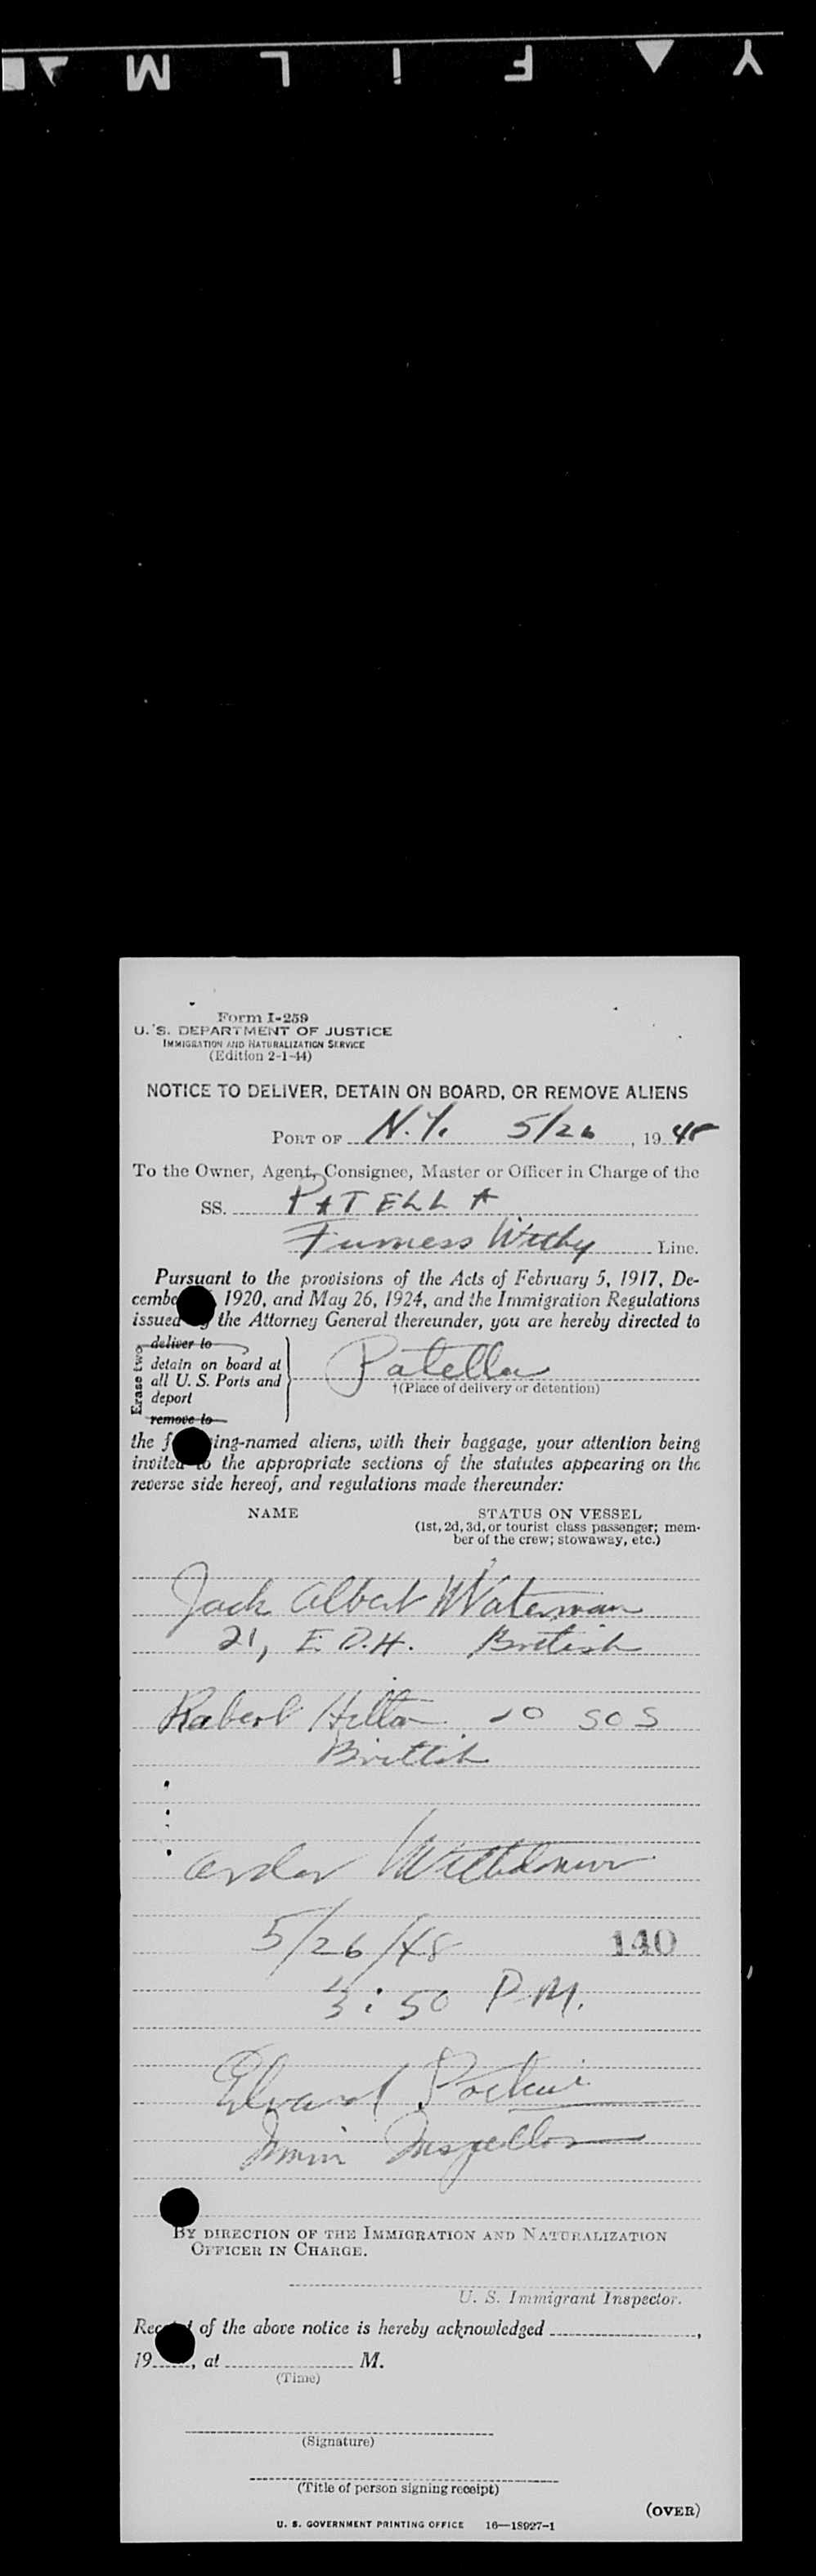 Y F I L M
Form I-259
U. S. DEPARTMENT OF JUSTICE
IMMIGRATION AND NATURALIZATION SERVICE
(Edition 2-1-44)
NOTICE TO DELIVER, DETAIN ON BOARD, OR REMOVE ALIENS
PORT OF N.Y. 5/26, 1948
To the Owner, Agent, Consignee, Master or Officer in Charge of the
SS. PATELLA
Furness Withy Line.
Pursuant to the provisions of the Acts of February 5, 1917, De-
cembe 1920, and May 26, 1924, and the Immigration Regulations
issued the Attorney General thereunder, you are hereby directed to
Erase two
deliver to
detain on board at
all U. S. Ports and
deport
remove to
Patella
†(Place of delivery or detention)
the f ing-named aliens, with their baggage, your attention being
invited to the appropriate sections of the statutes appearing on the
reverse side hereof, and regulations made thereunder:
NAME STATUS ON VESSEL
(1st, 2d, 3d, or tourist class passenger; mem-
ber of the crew; stowaway, etc.)
Jack Albert Waterman
21, E.D.H. British
Robert Hilton SOS
British
Order Withdrawn
5/26/48 140
3:50 P.M.
Edward
Immi Inspector
BY DIRECTION OF THE IMMIGRATION AND NATURALIZATION
OFFICER IN CHARGE.
U. S. Immigrant Inspector.
Rec t of the above notice is hereby acknowledged ,
19 , at M.
(Time)
(Signature)
(Title of person signing receipt)
(OVER)
U. S. GOVERNMENT PRINTING OFFICE 16—18927-1